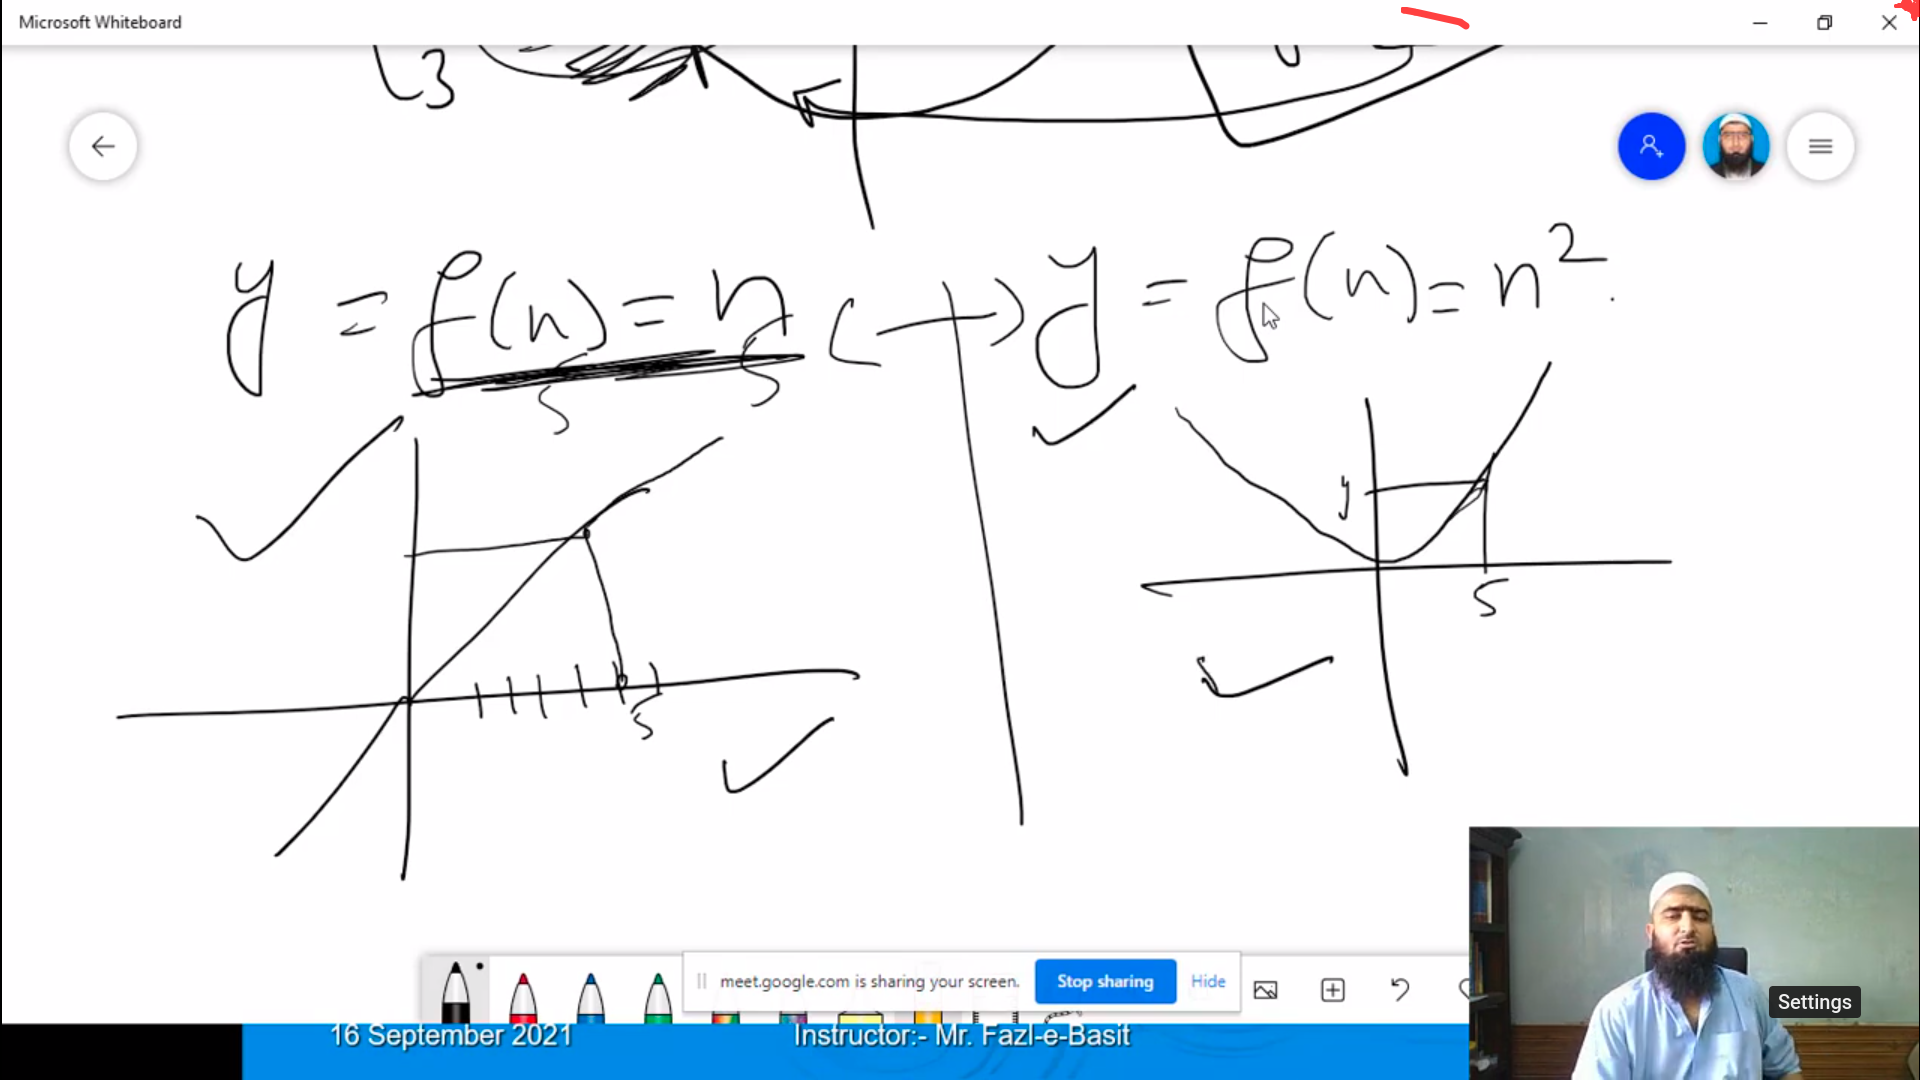 Microsoft Whiteboard
L3
y = f(n) = n
y = f(n) = n²
5
5
y
5
5
meet.google.com is sharing your screen.
Stop sharing
Hide
Settings
16 September 2021
Instructor:- Mr. Fazl-e-Basit